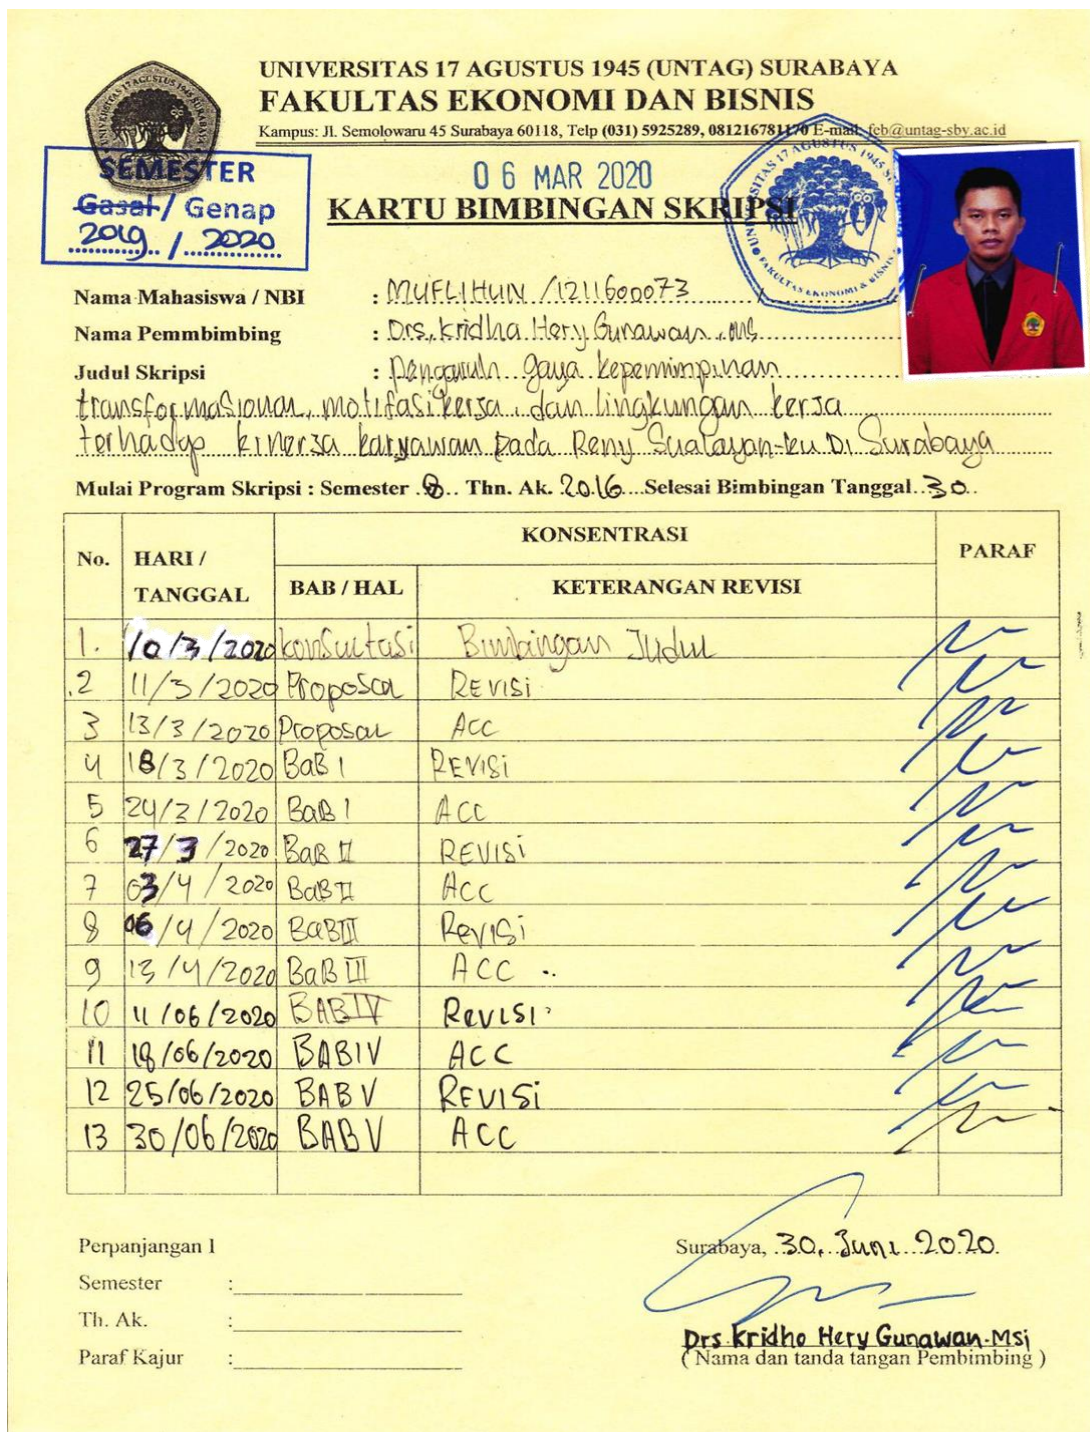 UNIVERSITAS 17 AGUSTUS 1945 (UNTAG) SURABAYA
FAKULTAS EKONOMI DAN BISNIS
Kampus: Jl. Semolowaru 45 Surabaya 60118, Telp (031) 5925289, 081216781170 E-mail: feb@untag-sby.ac.id
SEMESTER
Gasal / Genap
2019 / 2020
06 MAR 2020
KARTU BIMBINGAN SKRIPSI
Nama Mahasiswa / NBI : MUFLIHUN / 1211600073
Nama Pemmbimbing : Drs. Kridha Hery Gunawan, MS
Judul Skripsi : Pengaruh gaya kepemimpinan
transformasional, motifasi kerja, dan lingkungan kerja
terhadap kinerja karyawan pada Reny Swalayan-ku Di Surabaya
Mulai Program Skripsi : Semester 8 Thn. Ak. 2016 Selesai Bimbingan Tanggal 30
No. HARI / TANGGAL KONSENTRASI PARAF
BAB / HAL KETERANGAN REVISI
1. 10/3/2020 konsultasi Bimbingan Judul
2 11/3/2020 Proposal REVISi
3 13/3/2020 Proposal ACC
4 18/3/2020 BaB I REVISi
5 24/3/2020 BaB I ACC
6 27/3/2020 BaB II REVISi
7 03/4/2020 BaB II ACC
8 06/4/2020 BaB III REVISi
9 13/4/2020 BaB III ACC
10 11/06/2020 BAB IV REVISI
11 18/06/2020 BAB IV ACC
12 25/06/2020 BAB V REVISi
13 30/06/2020 BAB V ACC
Perpanjangan 1
Semester :
Th. Ak. :
Paraf Kajur :
Surabaya, 30, Juni 2020
Drs Kridho Hery Gunawan.Msi
( Nama dan tanda tangan Pembimbing )